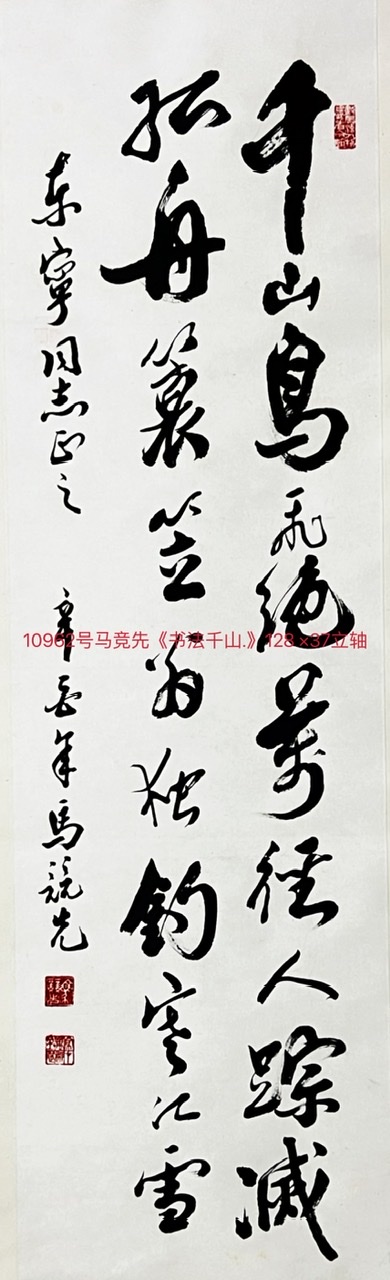 千山鳥飛絶萬徑人踪滅
孤舟簑笠翁独釣寒江雪
东寧同志正之
辛酉年馬競先
10962号马竞先《书法千山.》128×37立轴